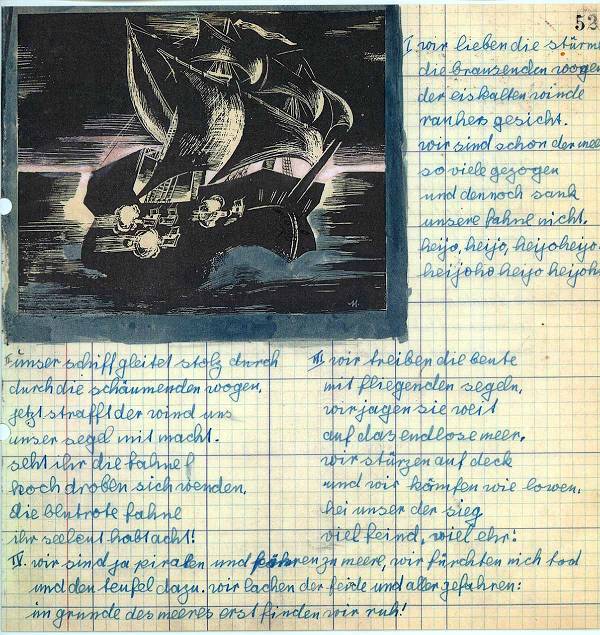 52
I. wir lieben die stürme
die brausenden wogen
der eiskalten winde
rauhes gesicht.
wir sind schon der mee
so viele gezogen
und dennoch sank
unsere fahne nicht.
heijo, heijo, heijoheijo
heijoho heijo heijoh
II. unser schiff gleitet stolz durch
durch die schäumenden woogen.
jetzt strafft der wind uns
unser segel mit macht.
seht ihr die fahne
hoch droben sich wenden,
die blutrote fahne
ihr seeleut habt acht!
III wir treiben die beute
mit fliegenden segeln,
wir jagen sie weit
auf das endlose meer.
wir stürzen auf deck
und wir kämfen wie lowen.
hei unser der sieg
viel feind, viel ehr!
IV. wir sind ja piraten und fahren zu meere, wir fürchten nich tod
und den teufel dazu. wir lachen der feide und aller gefahren:
im grunde des meeres erst finden wir ruh!